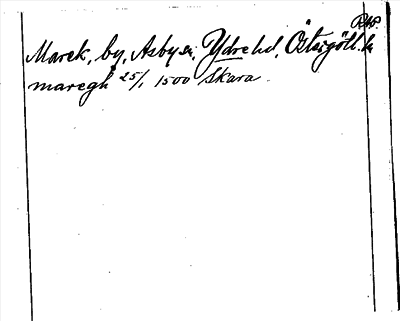 RAp.
Marek, by, Asby sn, Ydre hd, Östergötl. l.
maregh 25/1 1500 Skara